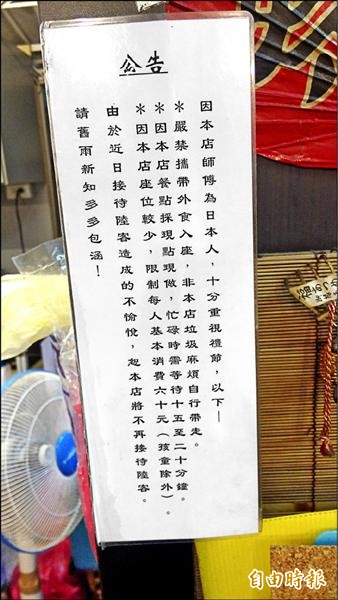 公告
因本店師傅為日本人，十分重視禮節，以下—
＊嚴禁攜帶外食入座，非本店垃圾麻煩自行帶走。
＊因本店餐點採現點現做，忙碌時需等待十五至二十分鐘。
＊因本店座位較少，限制每人基本消費六十元（孩童除外）。
由於近日接待陸客造成的不愉悅，恕本店將不再接待陸客。
請舊雨新知多多包涵！
自由時報